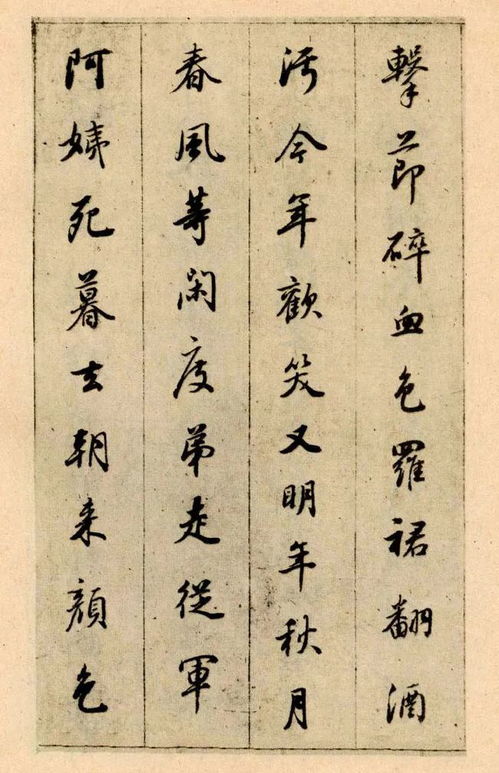 擊節碎血色羅裙翻酒
汙今年歡笑又明年秋月
春風等閑度弟走從軍
阿姨死暮去朝来顔色